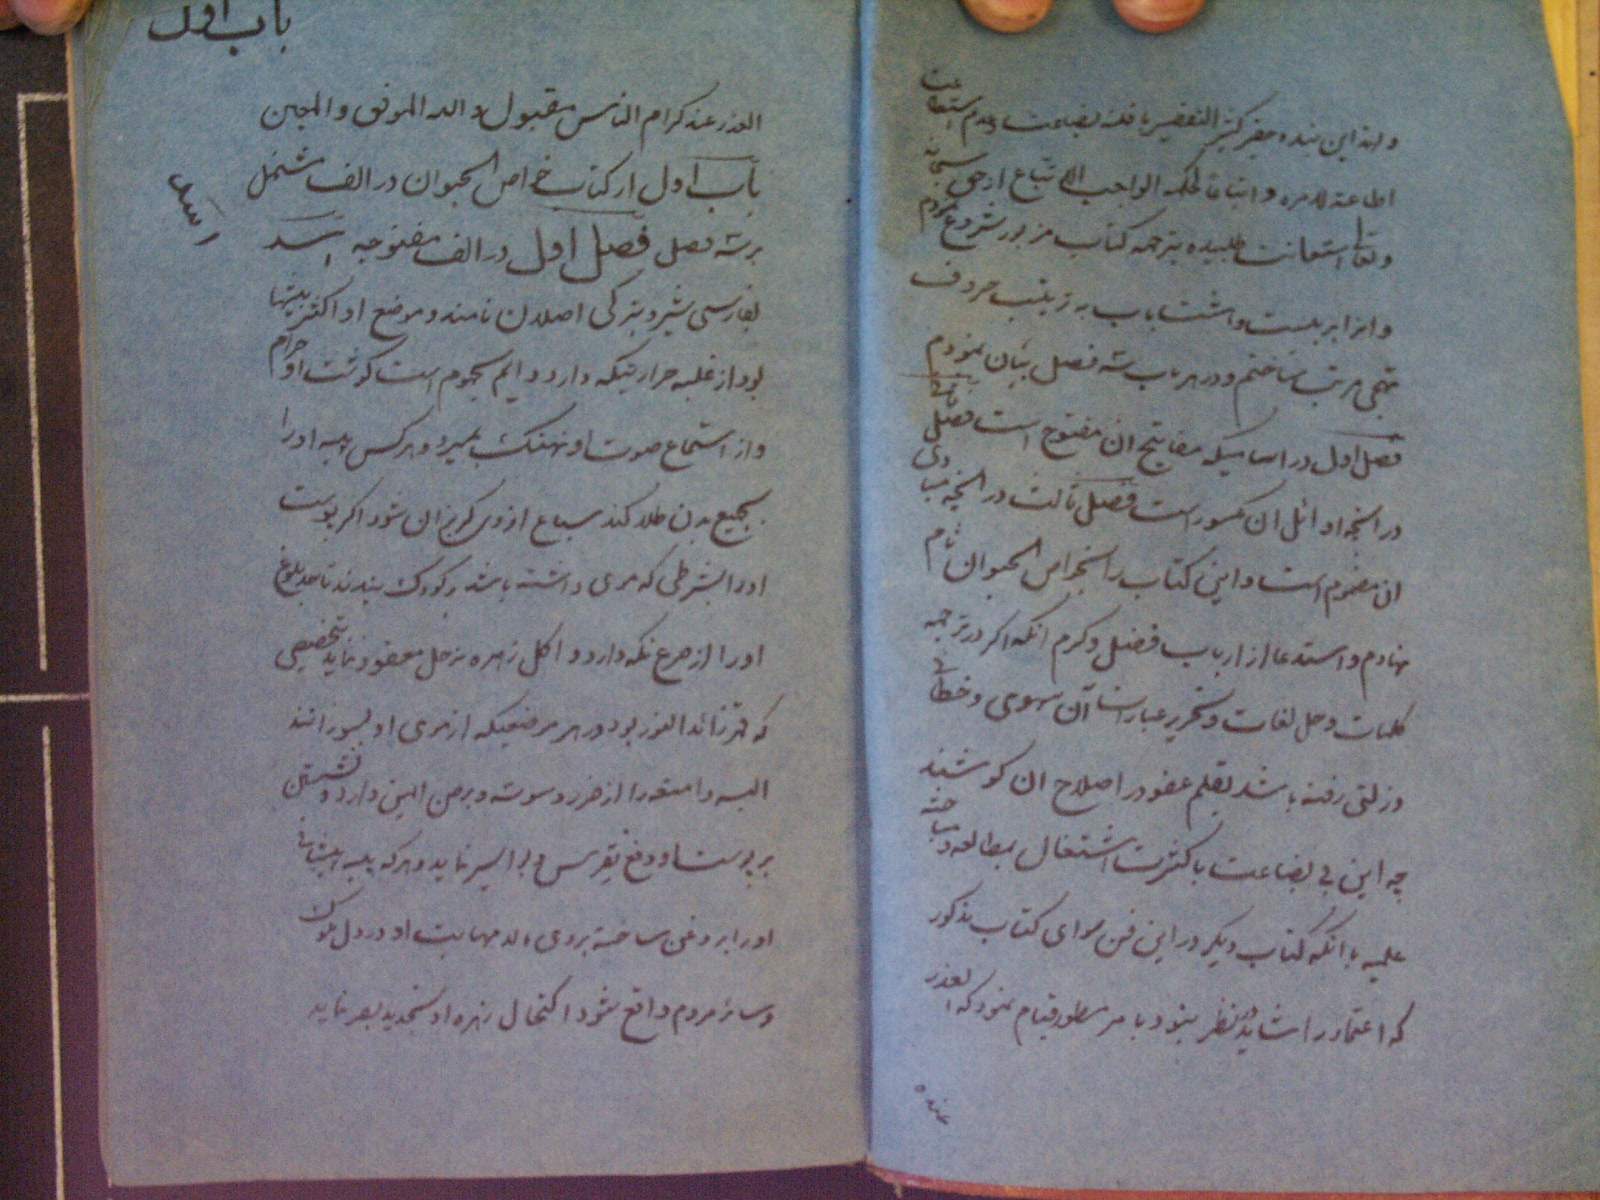 و لهذا این بنده حقیر کثیر التقصیر با قلت بضاعت و عدم استطاعت
اطاعة لامره و اتباعا لحکمه الواجب الاتباع از حق سبحانه
و تعالی استعانت طلبیده بترجمه کتاب مزبور شروع کردم
و انرا بر بیست و هشت باب به ترتیب حروف
تهجی مرتب ساختم و در هر باب سه فصل بیان نمودم
فصل اول در اسامیکه مفاتیح ان مفتوح است فصل ثانی
در انچه اوائل ان مکسور است فصل ثالث در انچه مبادی
ان مضموم است و این کتاب را بخواص الحیوان نام
نهادم و استدعا از ارباب فضل و کرم انکه اکر در ترجمه
کلمات و حل لغات و تحریر عبارات آن سهوی و خطائی
و زلتی رفته باشد بقلم عفو در اصلاح ان کوشند
چه این بی بضاعت با کثرت اشتغال بمطالعه و مباحثه
علمیه با انکه کتاب دیکر در این فن سوای کتاب مذکور
که اعتماد را شاید در نظر نبود بامر مسطور قیام نمود که العذر
عنده
باب اول
العذر عند کرام الناس مقبول و الله الموفق و المعین
باب اول از کتاب خواص الحیوان در الف مشتمل
بر سه فصل فصل اول در الف مفتوحه اسد
اسد
بفارسی شیر و بترکی اصلان نامند و موضع او اکثر بیشها
بود از غلبه حرارتیکه دارد دایم محموم است کوشت او حرام
و از استماع صوت او نهنک بمیرد و هر کس پیه او را
بجمیع بدن طلا کند سباع از وی کریزان شود اکر پوست
او را بشرطی که موی داشته باشد بر کودک بندند تا بحد بلوغ
او را از صرع نکه دارد و اکل زهره نر حل معقود نماید تخصیصی
که قمر زائد النور بود در هر موضعیکه از موی او بسوزانند
البسه و امتعه را از ضرر و سوسه و برص ایمن دارد و نشستن
بر پوست او دفع نقرس و بواسیر نماید و هر که پیه پیشانی
او را بروغن ساخته بر وی مالد مهابت او در دل ملوک
و سائر مردم واقع شود اکتحال زهره او تحدید بصر نماید